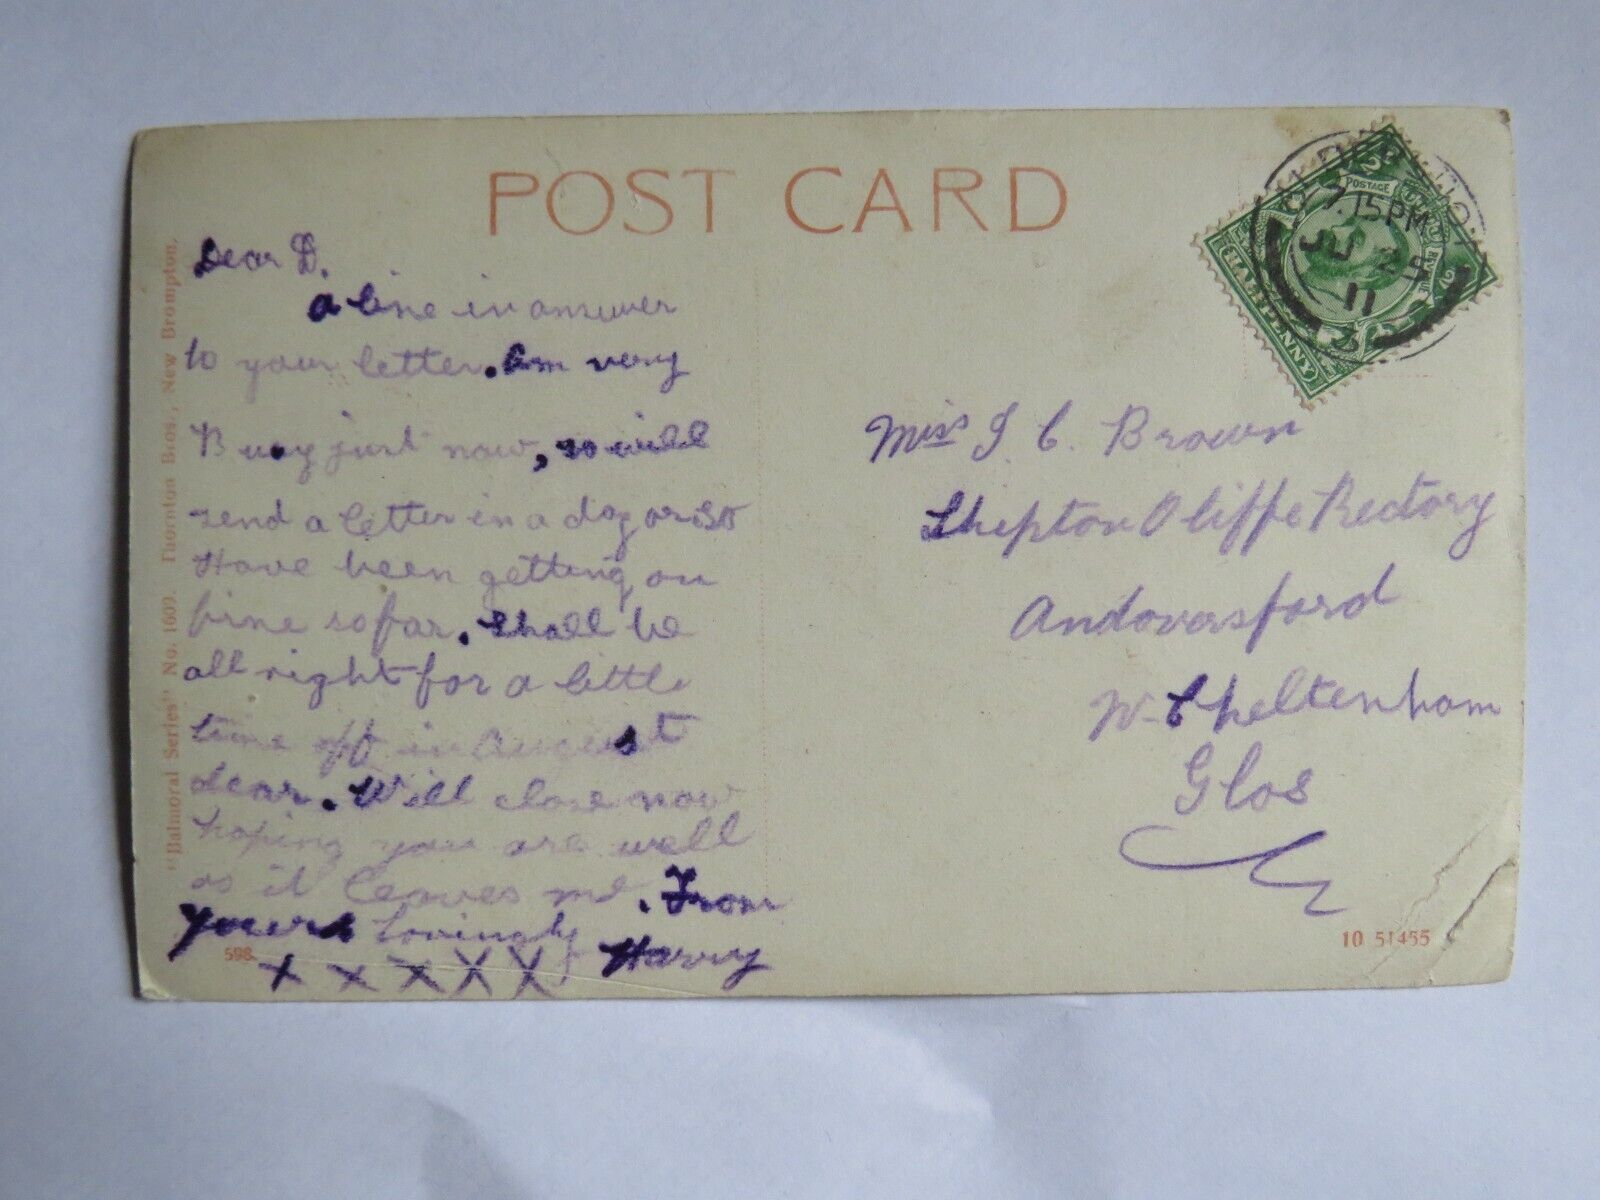 POST CARD
Dear D.
a line in answer
to your letter. Am very
Busy just now, so will
send a letter in a day or so
Have been getting on
fine so far. Shall be
all right for a little
time off in August
dear. Will close now
hoping you are well
as it leaves me. From
yours Lovingly Harry
x x x x x
Miss I C. Brown
Shipton Oliffe Rectory
Andoversford
Nr Cheltenham
Glos
"Balmoral Series" No. 1609. Thornton Bros., New Brompton.
598.
10 51455
POSTAGE
HALFPENNY
7.15PM
JU 2
11